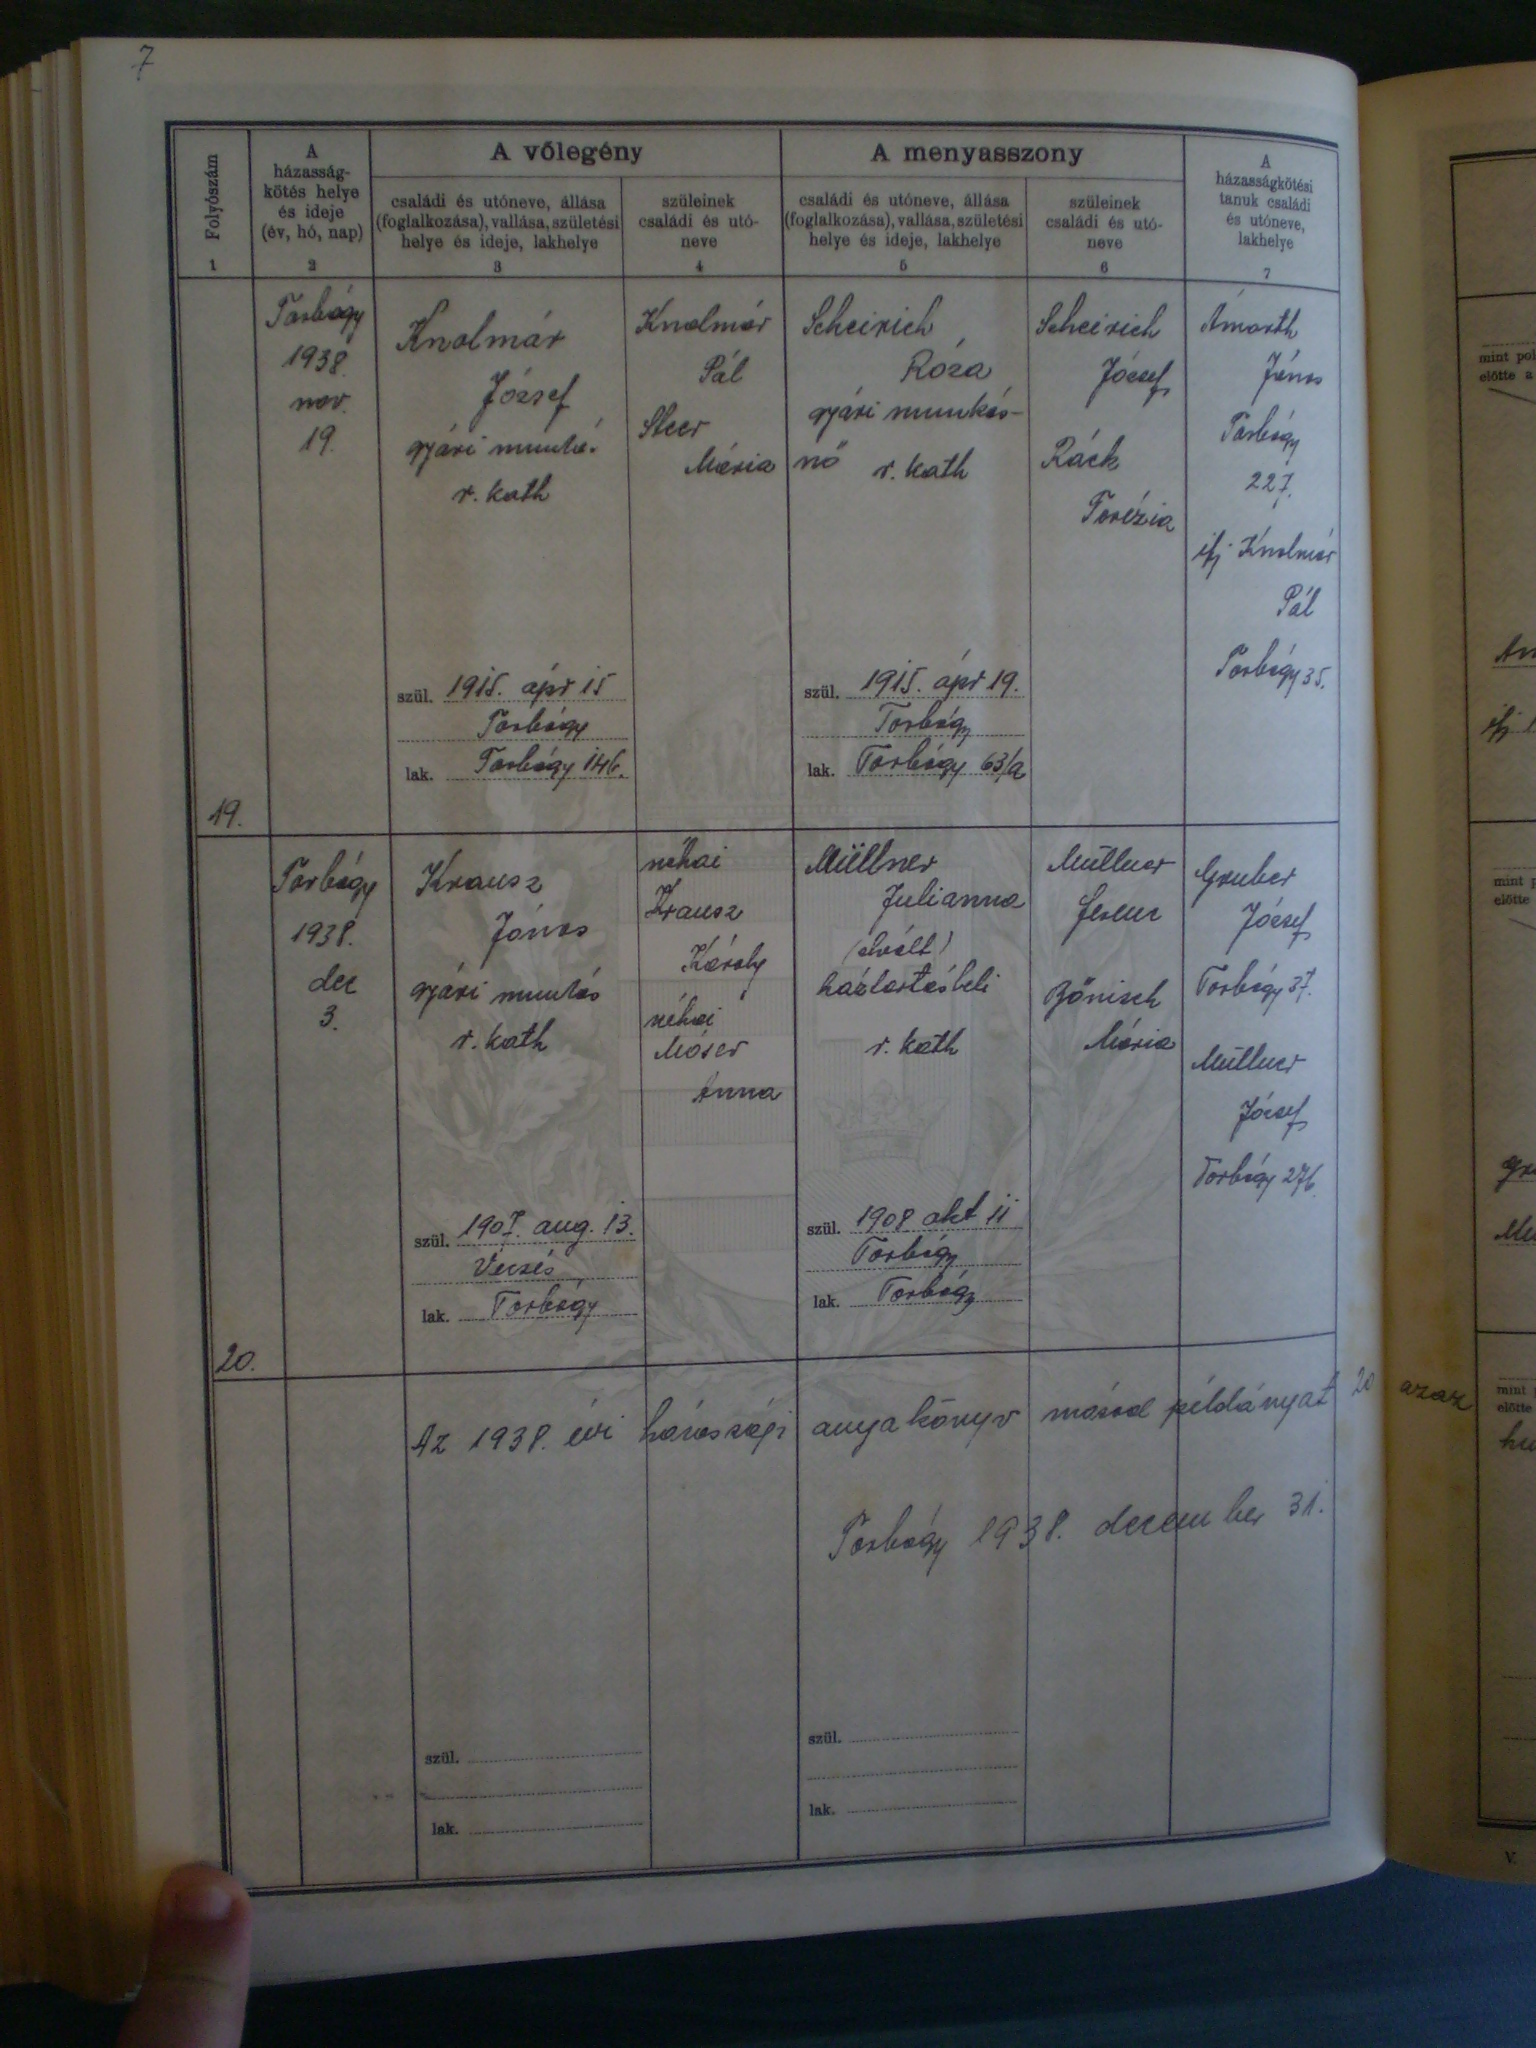 7
Folyószám
1
A
házasság-
kötés helye
és ideje
(év, hó, nap)
2
A vőlegény
családi és utóneve, állása
(foglalkozása), vallása, születési
helye és ideje, lakhelye
3
szüleinek
családi és utó-
neve
4
A menyasszony
családi és utóneve, állása
(foglalkozása), vallása, születési
helye és ideje, lakhelye
5
szüleinek
családi és utó-
neve
6
A
házasságkötési
tanuk családi
és utóneve,
lakhelye
7
19.
Torbágy
1938.
nov.
19.
Knolmár
József
gyári munká-
r. kath
szül. 1915. ápr 15
Torbágy
lak. Torbágy 146.
Knolmár
Pál
Steer
Mária
Scheirich
Róza
gyári munkás-
nő r. kath
szül. 1915. ápr 19.
Torbágy
lak. Torbágy 63/a
Scheirich
József
Ráck
Terézia
Ámorth
János
Torbágy
227.
ifj Knolmár
Pál
Torbágy 35.
20.
Torbágy
1938.
dec
3.
Krausz
János
gyári munkás
r. kath
szül. 1907. aug. 13.
Vecsés
lak. Torbágy
néhai
Krausz
Károly
néhai
Móser
Anna
Müllner
Julianna
(elvált)
háztartásbeli
r. kath
szül. 1908 okt 11
Torbágy
lak. Torbágy
Müllner
Ferenc
Bőnisch
Mária
Gruber
József
Torbágy 37.
Müllner
József
Torbágy 276.
Az 1938. évi házassági anyakönyv másod példányat 20 azaz
Torbágy 1938. december 31.
szül.
lak.
szül.
lak.
mint pol
előtte a
ifj
mint p
előtte
mint
előtte
V.